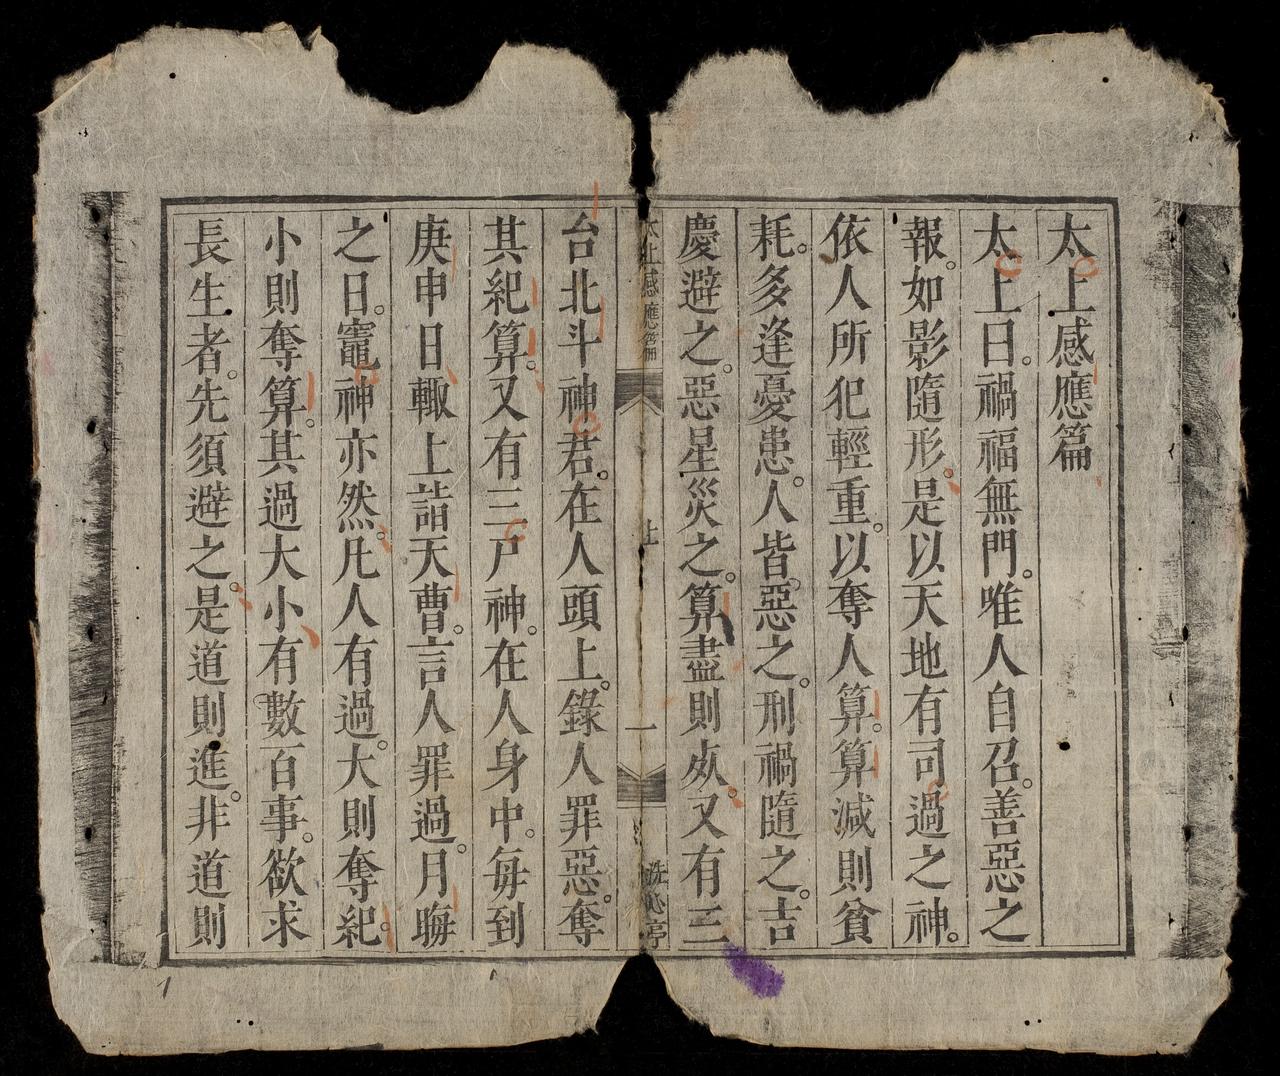 太上感應篇
太上曰。禍福無門。唯人自召。善惡之
報。如影隨形。是以天地有司過之神。
依人所犯輕重。以奪人算。算減則貧
耗。多逢憂患。人皆惡之。刑禍隨之。吉
慶避之。惡星災之。算盡則死。又有三
太上感應篇
上
一
洗心亭
台北斗神君。在人頭上。錄人罪惡。奪
其紀算。又有三尸神。在人身中。每到
庚申日。輙上詣天曹。言人罪過。月晦
之日。竈神亦然。凡人有過。大則奪紀。
小則奪算。其過大小。有數百事。欲求
長生者。先須避之。是道則進。非道則
1